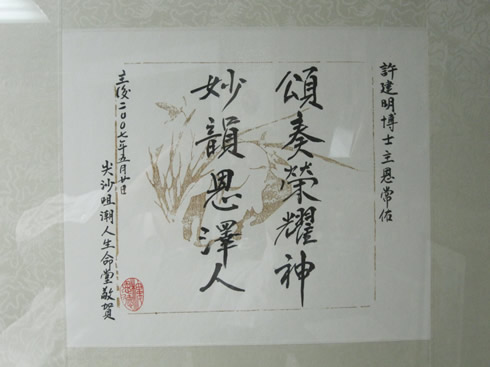 許建明博士主恩常佑
頌奏榮耀神
妙韻恩澤人
主後二〇〇七年五月廿日
尖沙咀潮人生命堂敬賀